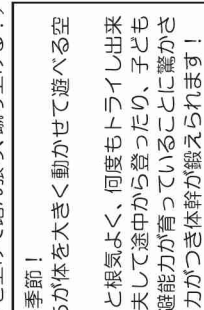 季節！
が体を大きく動かせて遊べる空
と根気よく、何度もトライし出来
夫して途中から登ったり、子ども
避能力が育っていることに驚かさ
力がつき体幹が鍛えられます！